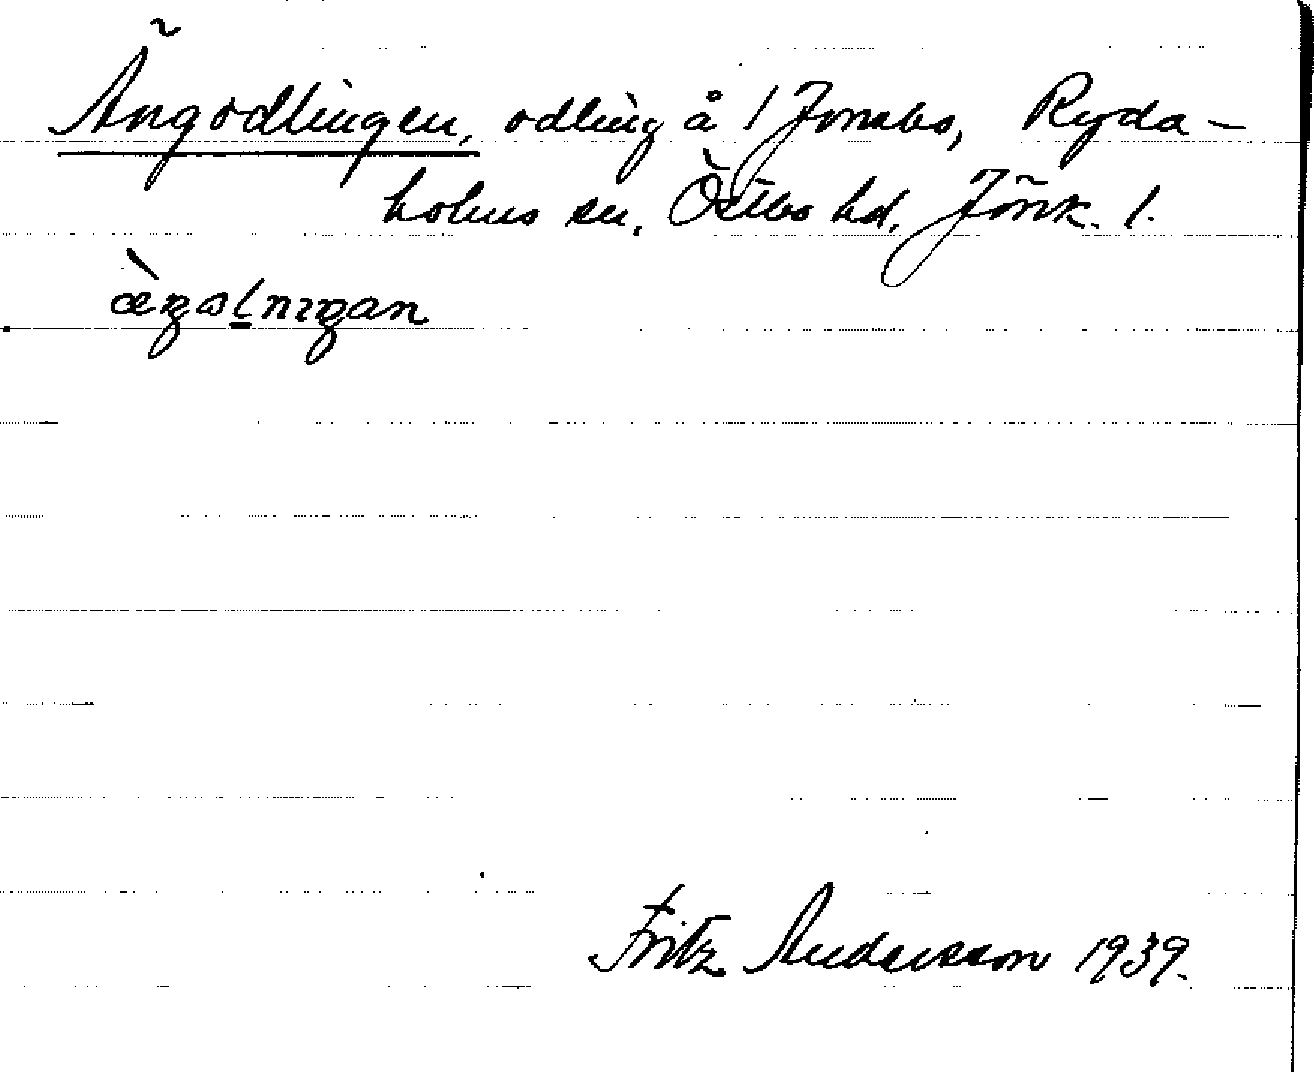 Ängodlingen, odling å 1 Jonsbo, Ryda-
holms sn, Östbo hd, Jönk. l.
Fritz Andersson 1939.